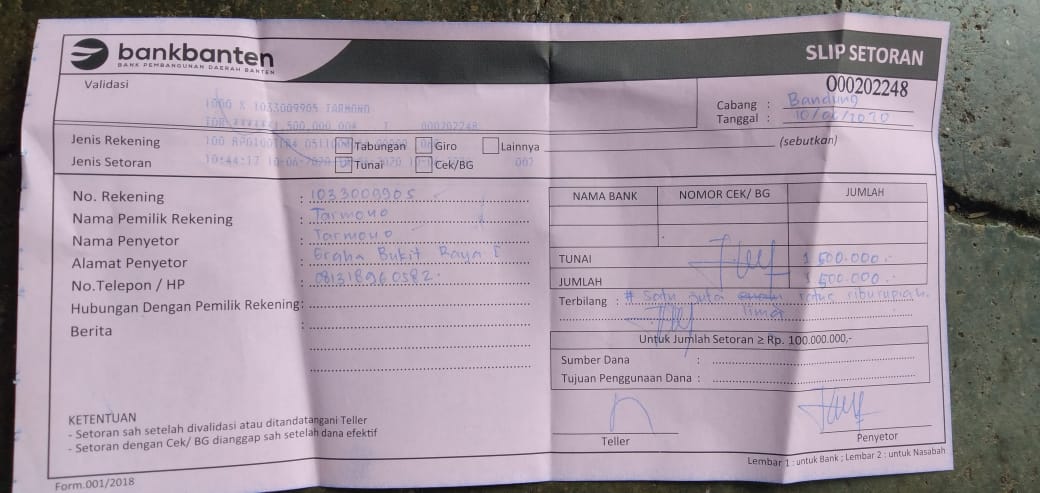 bankbanten
BANK PEMBANGUNAN DAERAH BANTEN
SLIP SETORAN
Validasi
000202248
1000 K 1033009905 TARMONO
1,500,000.00 000202248
Cabang : Bandung
Tanggal : 10/06/2020
Jenis Rekening Tabungan Giro Lainnya (sebutkan)
Jenis Setoran Tunai Cek/BG
10:44:17 10-06-2020
No. Rekening : 1033009905
Nama Pemilik Rekening : Tarmono
Nama Penyetor : Tarmono
Alamat Penyetor : Graha Bukit Raya I
No.Telepon / HP : 081318960582
Hubungan Dengan Pemilik Rekening:
Berita :
NAMA BANK NOMOR CEK/ BG JUMLAH
TUNAI 1 500.000.-
JUMLAH 1 500.000.-
Terbilang : # Satu juta ratus ribu rupiah.
lima
Untuk Jumlah Setoran ≥ Rp. 100.000.000,-
Sumber Dana :
Tujuan Penggunaan Dana :
KETENTUAN
- Setoran sah setelah divalidasi atau ditandatangani Teller
- Setoran dengan Cek/ BG dianggap sah setelah dana efektif
Teller
Penyetor
Form.001/2018
Lembar 1 : untuk Bank ; Lembar 2 : untuk Nasabah